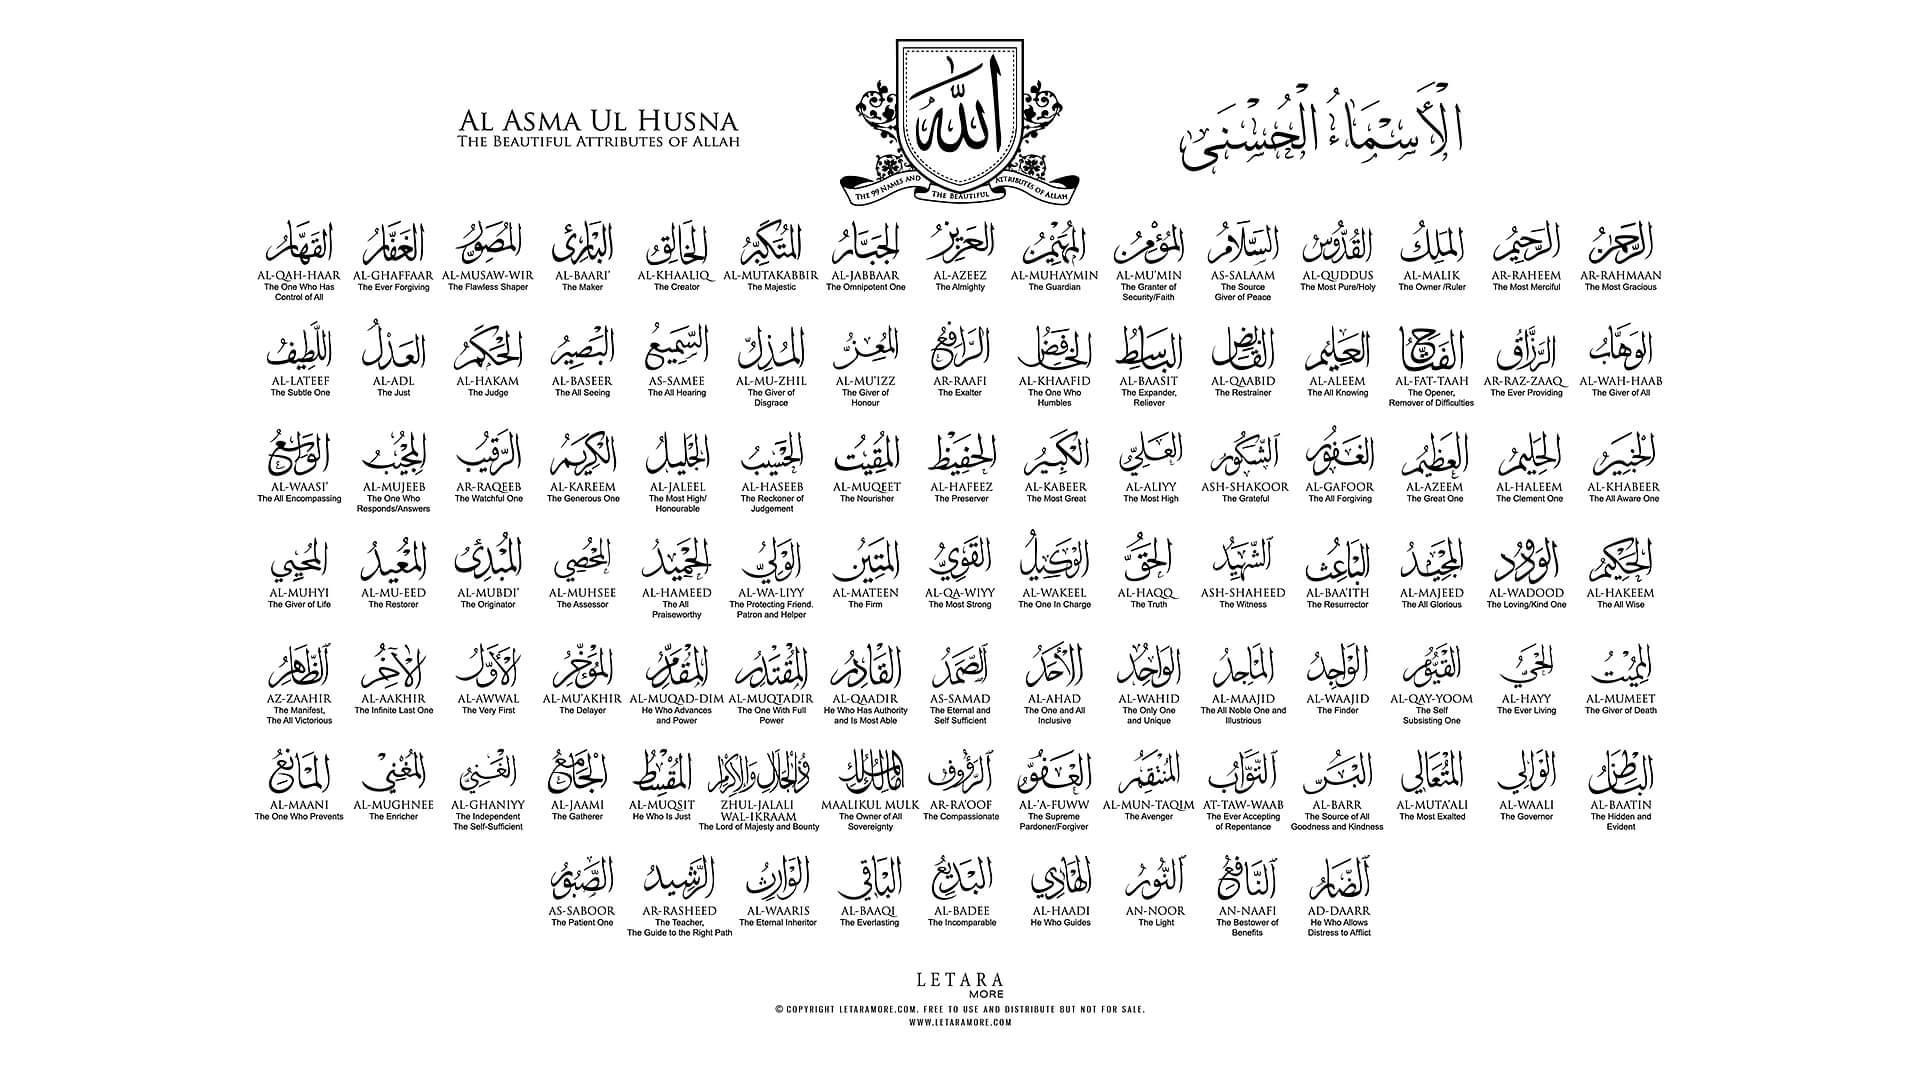 AL ASMA UL HUSNA
THE BEAUTIFUL ATTRIBUTES OF ALLAH
الله
THE 99 NAMES AND THE BEAUTIFUL ATTRIBUTES OF ALLAH
الْأَسْمَاءُ الْحُسْنَى
الرحمن الرحيم الملك القدوس السلام المؤمن المهيمن العزيز الجبار المتكبر الخالق البارئ المصور الغفار القهار
AL-QAH-HAAR AL-GHAFFAAR AL-MUSAW-WIR AL-BAARI' AL-KHAALIQ AL-MUTAKABBIR AL-JABBAAR AL-AZEEZ AL-MUHAYMIN AL-MU'MIN AS-SALAAM AL-QUDDUS AL-MALIK AR-RAHEEM AR-RAHMAAN
The One Who Has The Ever Forgiving The Flawless Shaper The Maker The Creator The Majestic The Omnipotent One The Almighty The Guardian The Granter of The Source The Most Pure/Holy The Owner /Ruler The Most Merciful The Most Gracious
Control of All Security/Faith Giver of Peace
الوهاب الرزاق الفتاح العليم القابض الباسط الخافض الرافع المعز المذل السميع البصير الحكم العدل اللطيف
AL-LATEEF AL-ADL AL-HAKAM AL-BASEER AS-SAMEE AL-MU-ZHIL AL-MU'IZZ AR-RAAFI AL-KHAAFID AL-BAASIT AL-QAABID AL-ALEEM AL-FAT-TAAH AR-RAZ-ZAAQ AL-WAH-HAAB
The Subtle One The Just The Judge The All Seeing The All Hearing The Giver of The Giver of The Exalter The One Who The Expander, The Restrainer The All Knowing The Opener, The Ever Providing The Giver of All
Disgrace Honour Humbles Reliever Remover of Difficulties
الخبير الحليم العظيم الغفور الشكور العلي الكبير الحفيظ المقيت الحسيب الجليل الكريم الرقيب المجيب الواسع
AL-WAASI' AL-MUJEEB AR-RAQEEB AL-KAREEM AL-JALEEL AL-HASEEB AL-MUQEET AL-HAFEEZ AL-KABEER AL-ALIYY ASH-SHAKOOR AL-GAFOOR AL-AZEEM AL-HALEEM AL-KHABEER
The All Encompassing The One Who The Watchful One The Generous One The Most High/ The Reckoner of The Nourisher The Preserver The Most Great The Most High The Grateful The All Forgiving The Great One The Clement One The All Aware One
Responds/Answers Honourable Judgement
الحكيم الودود المجيد الباعث الشهيد الحق الوكيل القوي المتين الولي الحميد المحصي المبدئ المعيد المحيي
AL-MUHYI AL-MU-EED AL-MUBDI' AL-MUHSEE AL-HAMEED AL-WA-LIYY AL-MATEEN AL-QA-WIYY AL-WAKEEL AL-HAQQ ASH-SHAHEED AL-BAA'ITH AL-MAJEED AL-WADOOD AL-HAKEEM
The Giver of Life The Restorer The Originator The Assessor The All The Protecting Friend. The Firm The Most Strong The One In Charge The Truth The Witness The Resurrector The All Glorious The Loving/Kind One The All Wise
Praiseworthy Patron and Helper
المميت الحي القيوم الواجد الماجد الواحد الأحد الصمد القادر المقتدر المقدم المؤخر الأول الآخر الظاهر
AZ-ZAAHIR AL-AAKHIR AL-AWWAL AL-MU'AKHIR AL-MUQAD-DIM AL-MUQTADIR AL-QAADIR AS-SAMAD AL-AHAD AL-WAHID AL-MAAJID AL-WAAJID AL-QAY-YOOM AL-HAYY AL-MUMEET
The Manifest, The Infinite Last One The Very First The Delayer He Who Advances The One With Full He Who Has Authority The Eternal and The One and All The Only One The All Noble One and The Finder The Self The Ever Living The Giver of Death
The All Victorious and Power Power and Is Most Able Self Sufficient Inclusive and Unique Illustrious Subsisting One
الباطن الوالي المتعالي البر التواب المنتقم العفو الرؤوف مالك الملك ذو الجلال والإكرام المقسط الجامع الغني المغني المانع
AL-MAANI AL-MUGHNEE AL-GHANIYY AL-JAAMI AL-MUQSIT ZHUL-JALALI MAALIKUL MULK AR-RA'OOF AL-'A-FUWW AL-MUN-TAQIM AT-TAW-WAAB AL-BARR AL-MUTA'ALI AL-WAALI AL-BAATIN
The One Who Prevents The Enricher The Independent The Gatherer He Who Is Just WAL-IKRAAM The Owner of All The Compassionate The Supreme The Avenger The Ever Accepting The Source of All The Most Exalted The Governor The Hidden and
The Self-Sufficient The Lord of Majesty and Bounty Sovereignty Pardoner/Forgiver of Repentance Goodness and Kindness Evident
الضار النافع النور الهادي البديع الباقي الوارث الرشيد الصبور
AS-SABOOR AR-RASHEED AL-WAARIS AL-BAAQI AL-BADEE AL-HAADI AN-NOOR AN-NAAFI AD-DAARR
The Patient One The Teacher, The Eternal Inheritor The Everlasting The Incomparable He Who Guides The Light The Bestower of He Who Allows
The Guide to the Right Path Benefits Distress to Afflict
LETARA
MORE
© COPYRIGHT LETARAMORE.COM. FREE TO USE AND DISTRIBUTE BUT NOT FOR SALE.
WWW.LETARAMORE.COM